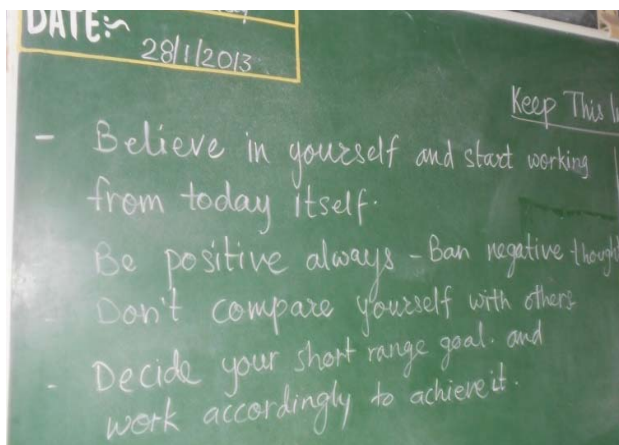 DATE:~
28/1/2013
Keep This
- Believe in yourself and start working
from today itself.
Be positive always - Ban negative thought
- Don't compare yourself with others
- Decide your short range goal. and
work accordingly to achieve it.